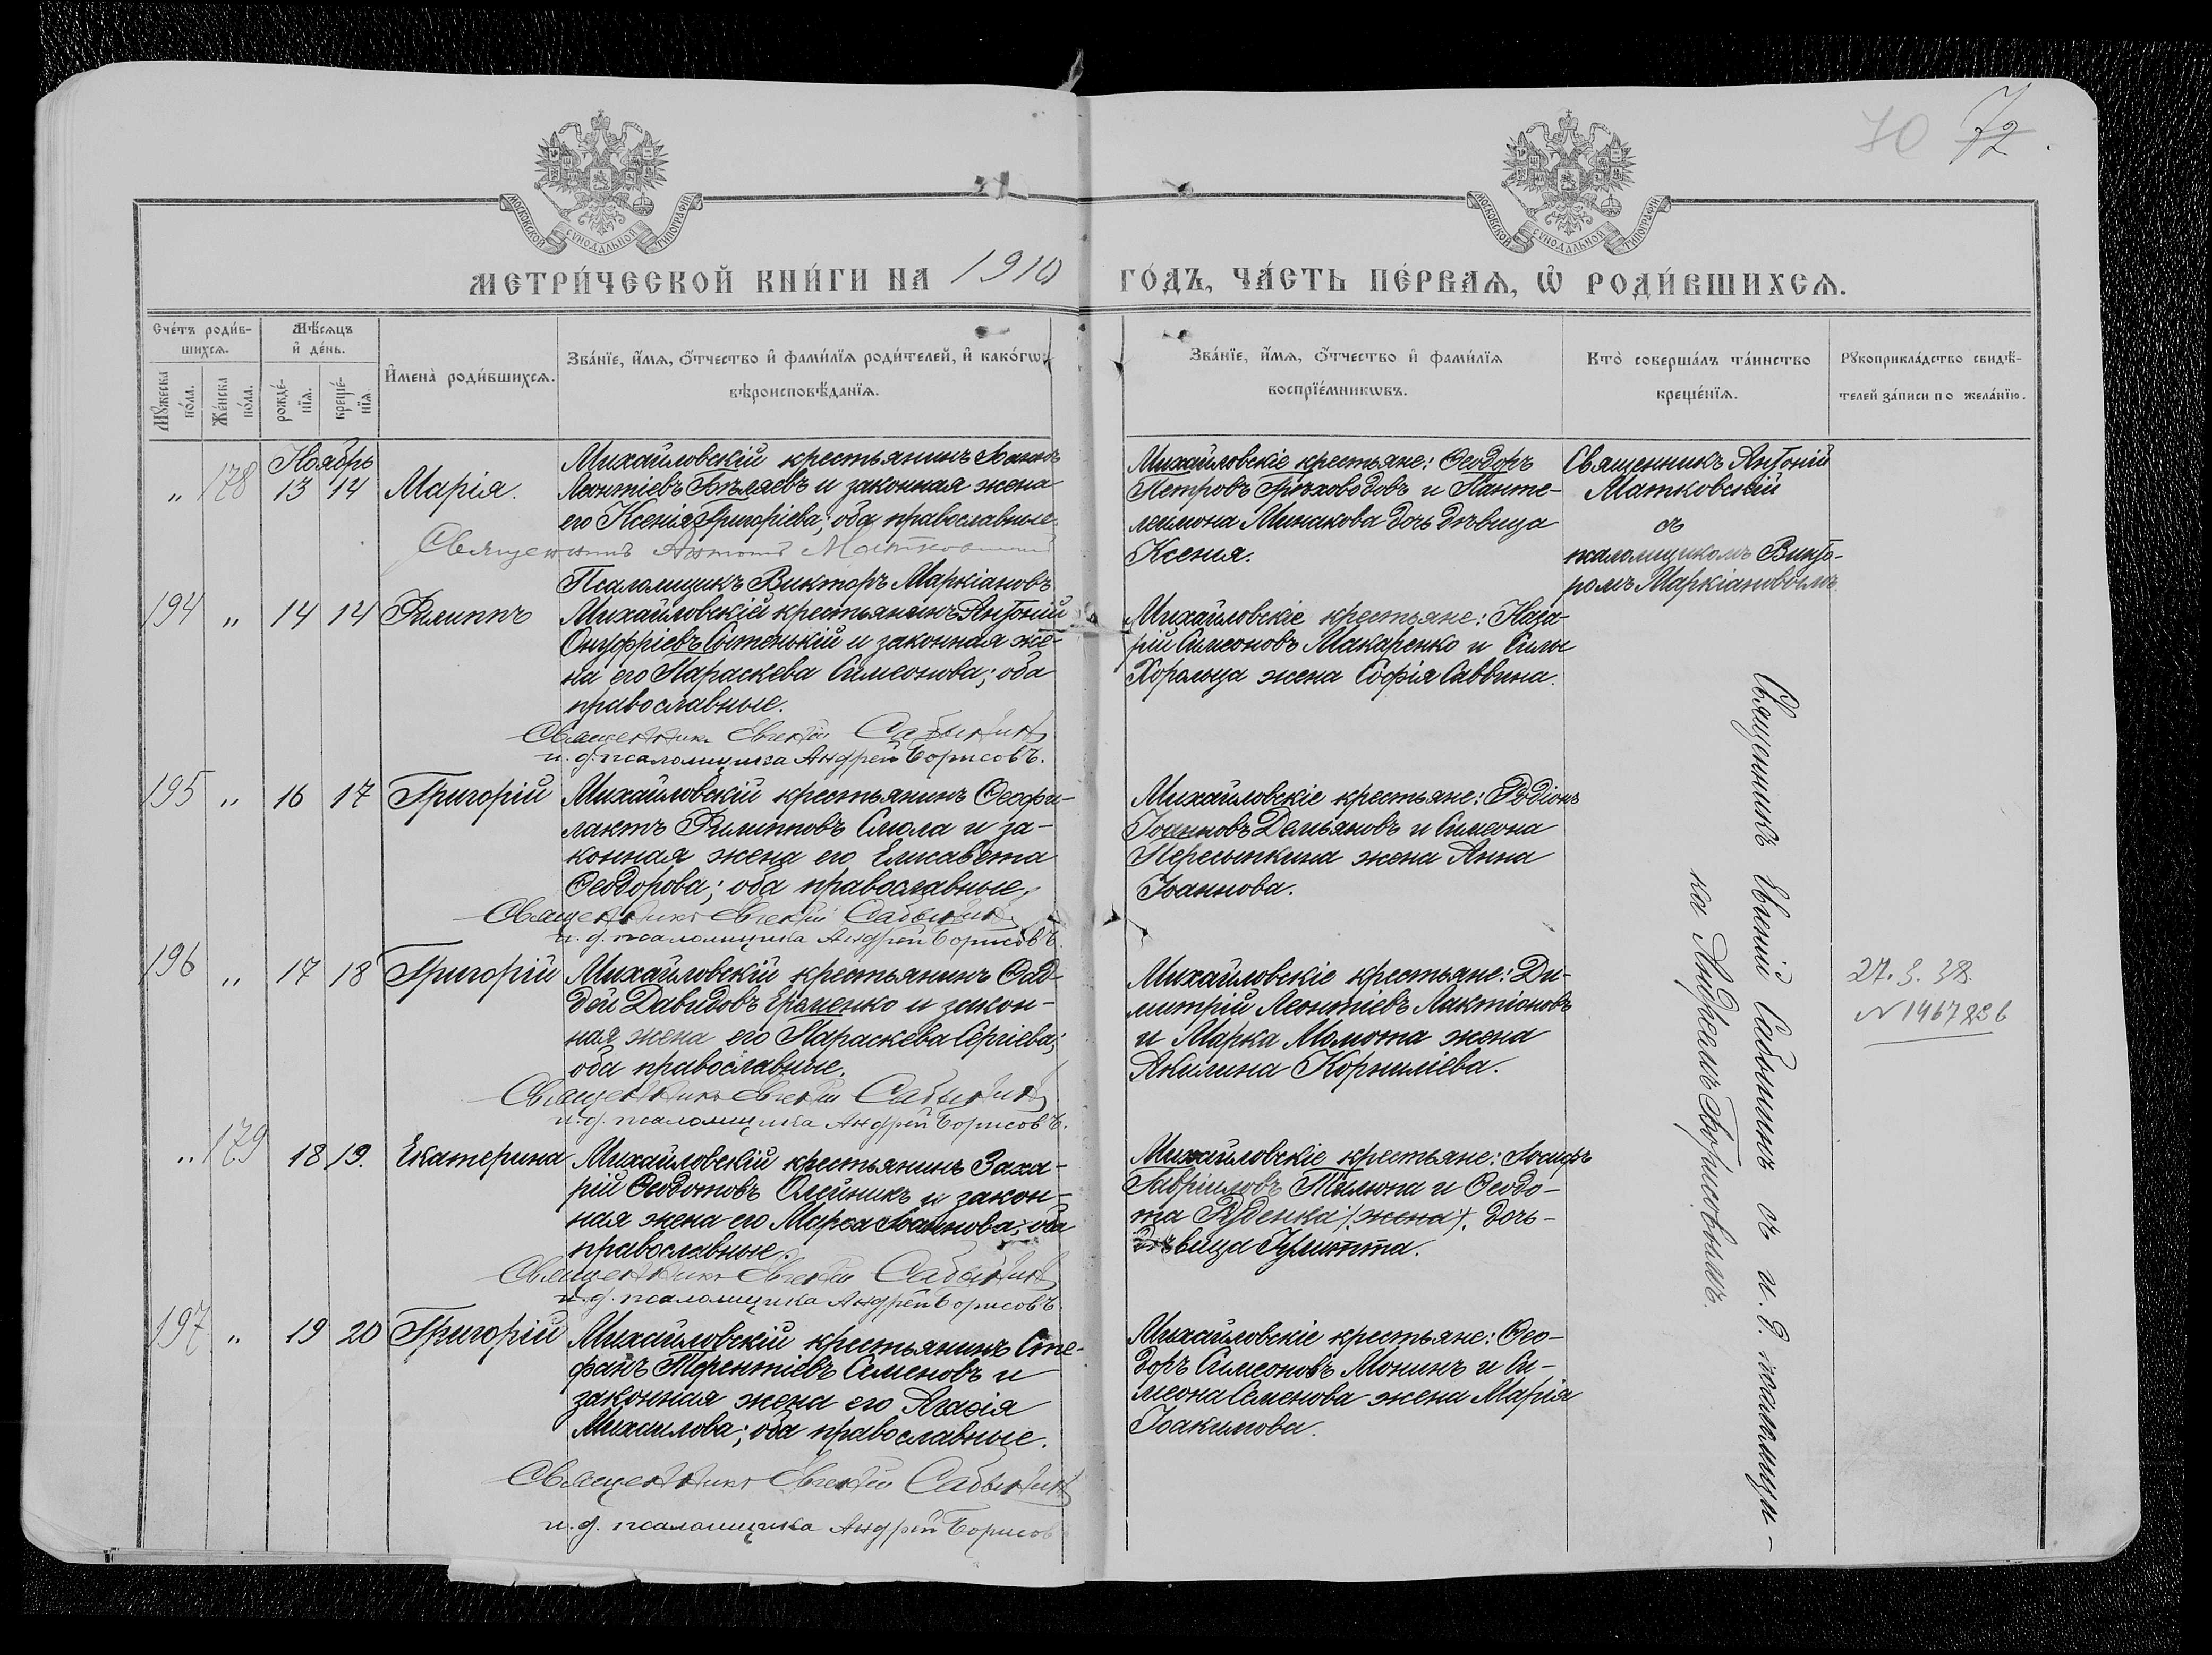 70 72
МОСКОВСКОЙ СѴНОДАЛЬНОЙ ТИПОГРАФІИ
МОСКОВСКОЙ СѴНОДАЛЬНОЙ ТИПОГРАФІИ
МЕТРИ́ЧЕСКОЙ КНИ́ГИ НА 1910 ГО́ДЪ, ЧА́СТЬ ПЕ́РВАѦ, Ѡ҆ РОДИ́ВШИХСѦ.
Счéтъ роди́в-
шихсѧ.
Мꙋ́жеска по́ла.
Же́нска по́ла.
Мѣ́сѧцъ
и҆ де́нь.
рожде́-
нїѧ.
креще́-
нїѧ.
И҆мена̀ роди́вшихсѧ.
Зва́нїе, и҆́мѧ, ѻ҆́тчество и҆ фами́лїѧ роди́телей, и҆ како́гѡ
вѣроисповѣ́данїѧ.
Зва́нїе, и҆́мѧ, ѻ҆́тчество и҆ фами́лїѧ
воспрїе́мникѡвъ.
Кто̀ соверша́лъ та́инство
креще́нїѧ.
Рꙋкоприкла́дство свидѣ́-
телей за́писи по жела́нїю.
Ноябрь
„ 178 13 14 Марія.
Михайловскій крестьянинъ
Леонтіевъ Бѣляевъ и законная жена
его Ксенія Григоріева; оба православные.
Священникъ Антоній Матковскій
Псаломщикъ Викторъ Маркіановъ
Михайловскіе крестьяне: Ѳеодоръ
Петровъ Грѣховодовъ и Панте-
леимона Минакова дочь дѣвица
Ксенія.
Священникъ Антоній
Матковскій
съ
псаломщикомъ Викто-
ромъ Маркіановымъ.
194 „ 14 14 Филиппъ
Михайловскій крестьянинъ Антоній
Онуфріевъ Сытенькій и законная же-
на его Параскева Симеонова; оба
православные.
Священникъ Евгеній Сабынинъ
и. д. псаломщика Андрей Борисовъ.
Михайловскіе крестьяне: Наза-
рій Симеоновъ Макаренко и Силы
Хорольца жена Софія Саввина.
195 „ 16 17 Григорій
Михайловскій крестьянинъ Ѳеофи-
лактъ Филипповъ Смола и за-
конная жена его Елисавета
Ѳеодорова; оба православные.
Священникъ Евгеній Сабынинъ
и. д. псаломщика Андрей Борисовъ.
Михайловскіе крестьяне: Родіонъ
Іоанновъ Демьяновъ и Симеона
Пересыпкина жена Анна
Іоаннова.
196 „ 17 18 Григорій
Михайловскій крестьянинъ Ѳад-
дей Давидовъ Ерёменко и закон-
ная жена его Параскева Сергіева;
оба православные.
Священникъ Евгеній Сабынинъ
и. д. псаломщика Андрей Борисовъ.
Михайловскіе крестьяне: Ди-
митрій Леонтіевъ Лактіоновъ
и Марка Момота жена
Акилина Корниліева.
27. 3. 38.
N 1467236
„ 179 18 19. Екатерина
Михайловскій крестьянинъ Заха-
рій Ѳеодотовъ Олейникъ и закон-
ная жена его Марѳа Іоаннова; оба
православные.
Священникъ Евгеній Сабынинъ
и. д. псаломщика Андрей Борисовъ.
Михайловскіе крестьяне: Іосифъ
Гавріиловъ и Ѳеодо-
та Руденка /. жена /. дочь-
дѣвица Іулитта.
197 „ 19 20 Григорій
Михайловскій крестьянинъ Сте-
фанъ Терентіевъ Семеновъ и
законная жена его Агаѳія
Михаилова; оба православные.
Священникъ Евгеній Сабынинъ
и. д. псаломщика Андрей Борисовъ
Михайловскіе крестьяне: Ѳео-
доръ Симеоновъ Монинъ и Си-
меона Семенова жена Марія
Іоакимова.
Священникъ Евгеній Сабынинъ съ и. д. псаломщи-
ка Андреемъ Борисовымъ.